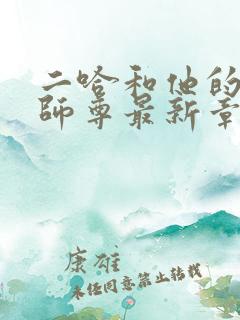 二哈和他的
師尊最新章
康雄
未经同意禁止转载